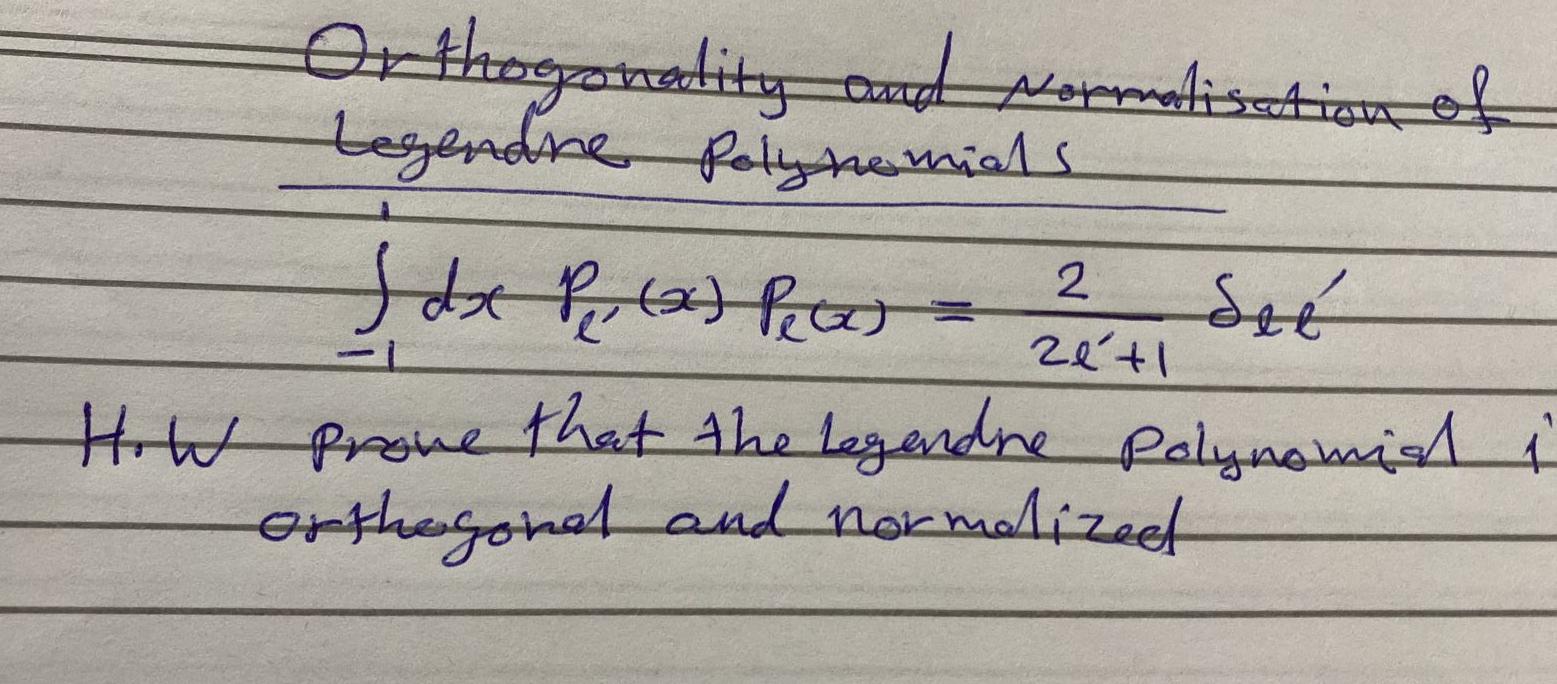 Orthogonality and Normalisation of
Legendre Polynomials
∫₋₁¹ dx Pℓ′(x) Pℓ(x) = 2/(2ℓ′+1) δℓℓ′
H.W prove that the Legendre Polynomial i
orthogonal and normalized